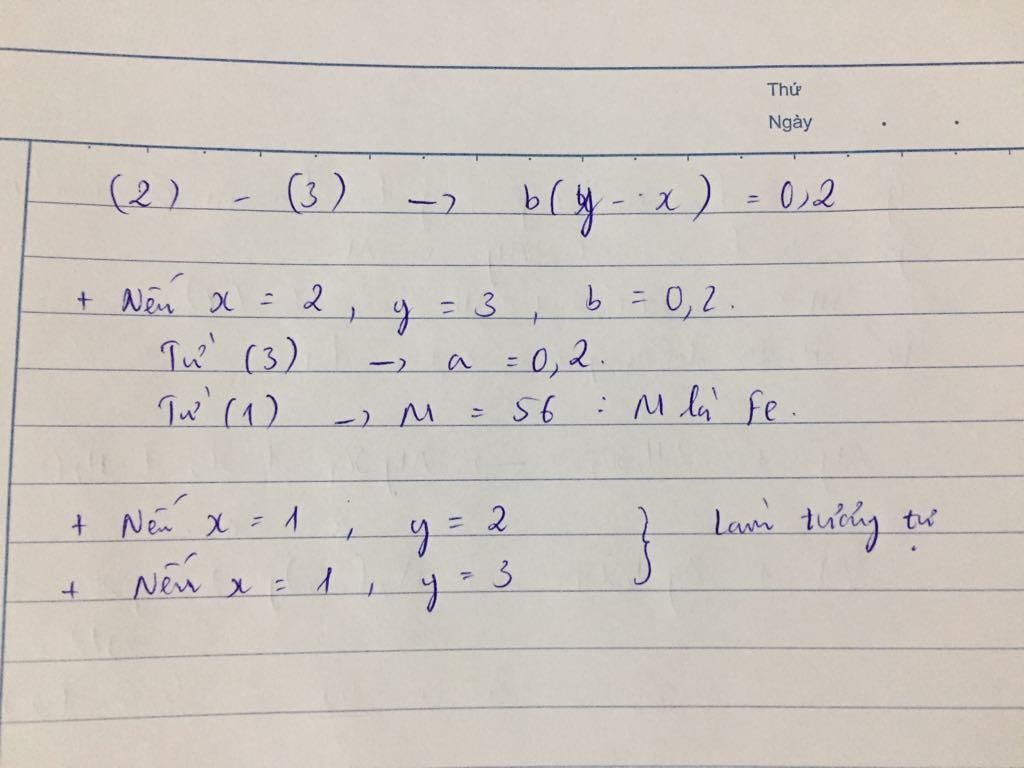 Thứ
Ngày
(2) - (3) → b(y - x) = 0,2
+ Nếu x = 2, y = 3, b = 0,2.
Từ (3) → a = 0,2.
Từ (1) → M = 56 : M là Fe.
+ Nếu x = 1, y = 2 } Làm tương tự
+ Nếu x = 1, y = 3